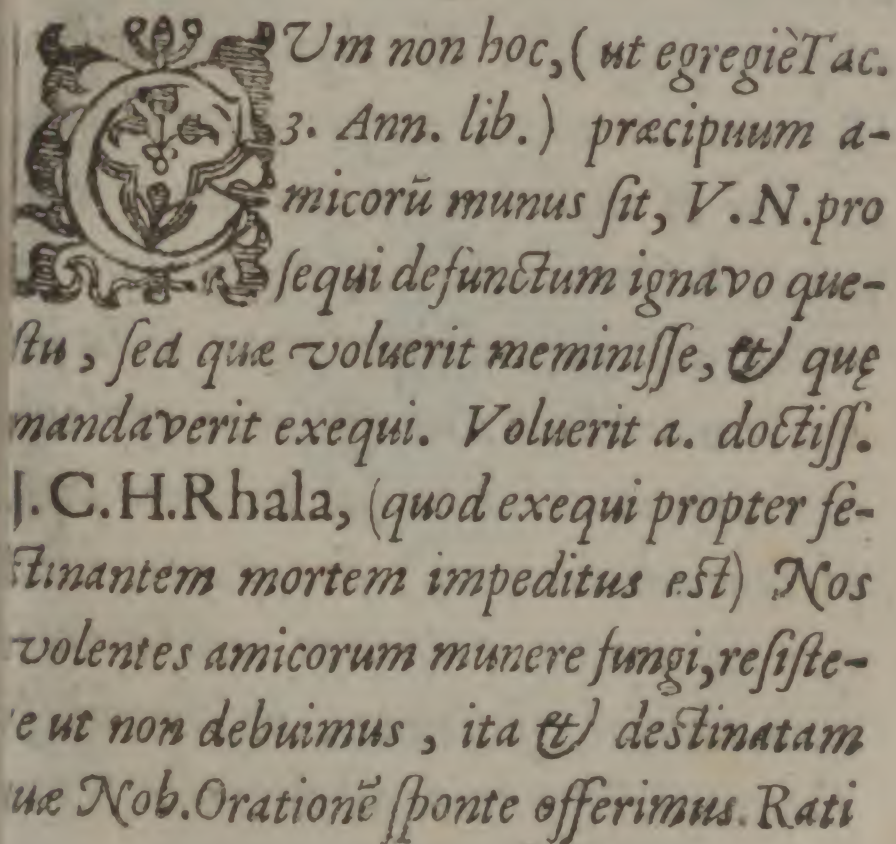 CUm non hoc, ( ut egregiè Tac.
3. Ann. lib. ) præcipuum a-
micorũ munus ſit, V. N. pro
ſequi defunctum ignavo que-
ſtu, ſed quæ voluerit meminiſſe, & quę
mandaverit exequi. Voluerit a. doctiſſ.
J. C. H. Rhala, (quod exequi propter fe-
ſtinantem mortem impeditus eſt) Nos
volentes amicorum munere fungi, reſiſte-
e ut non debuimus, ita & deſtinatam
uæ Nob. Orationẽ ſponte offerimus. Rati